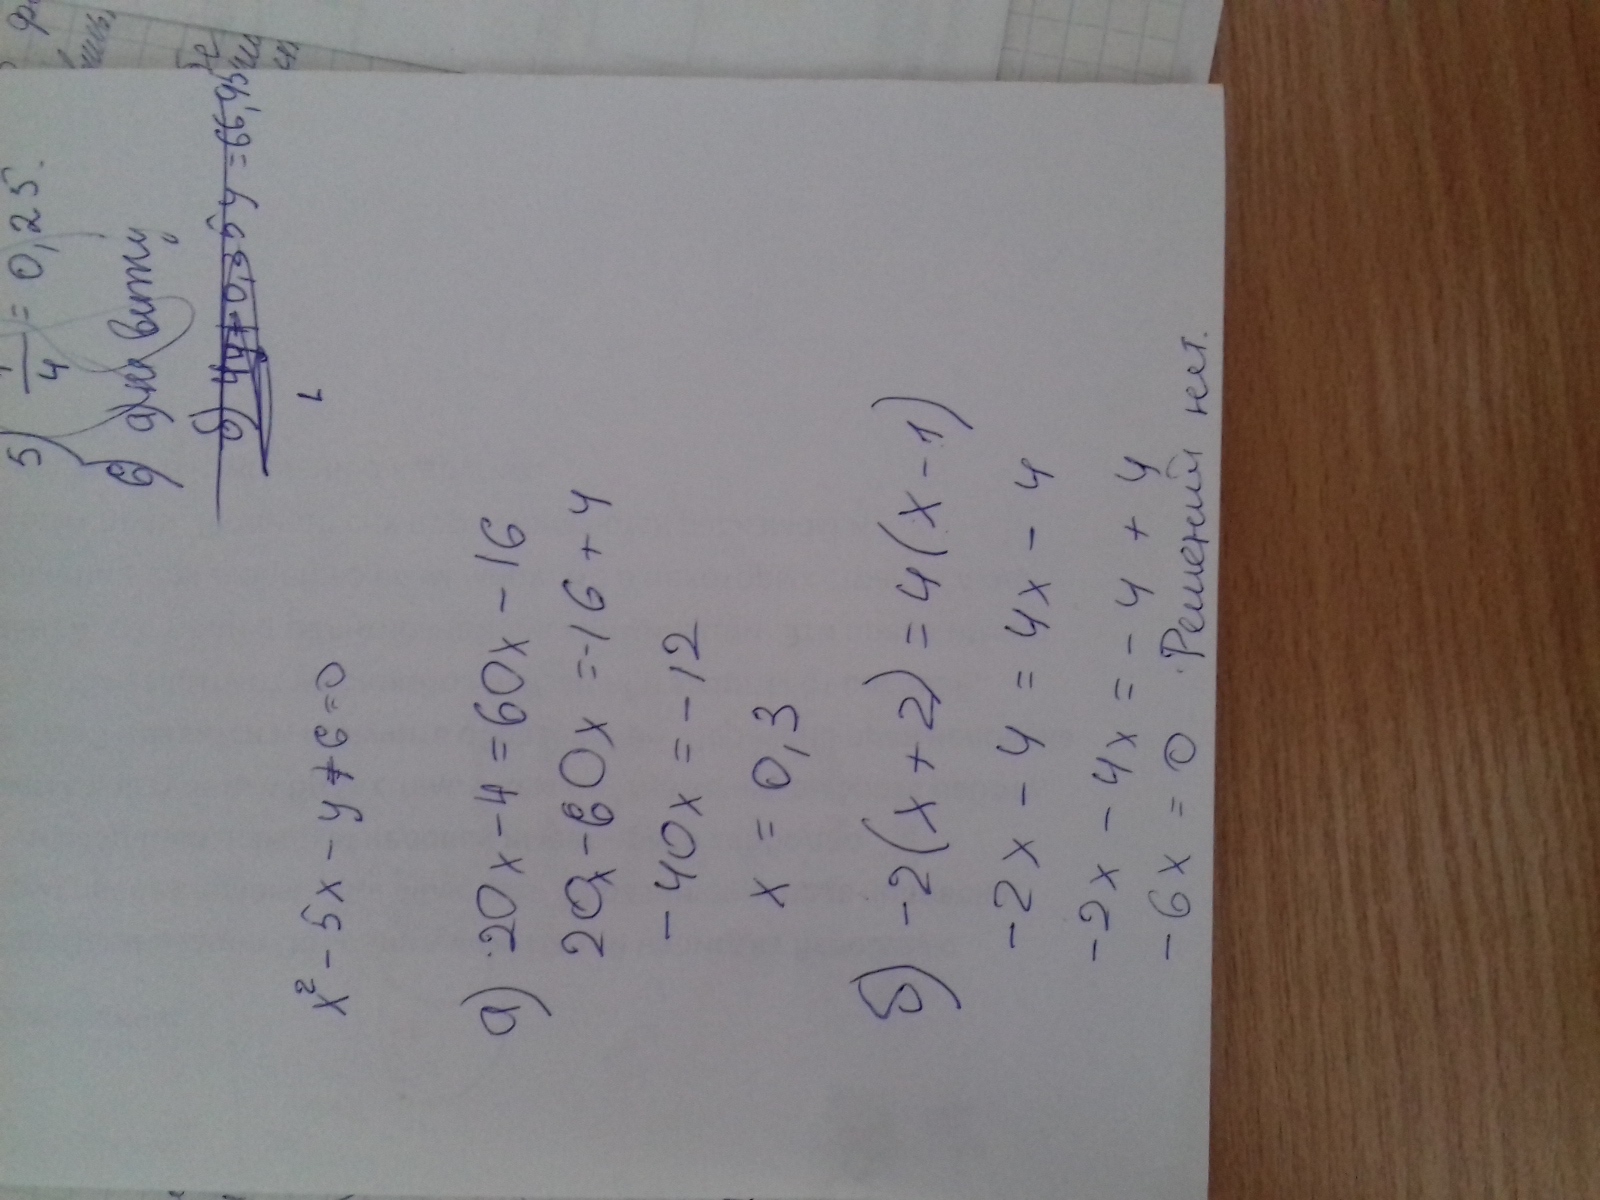 5) 1/4 = 0,25.
x² - 5x - y + 6 = 0
а) 20x - 4 = 60x - 16
20x - 60x = -16 + 4
-40x = -12
x = 0,3
б) -2(x + 2) = 4(x - 1)
-2x - 4 = 4x - 4
-2x - 4x = -4 + 4
-6x = 0 Решений нет.